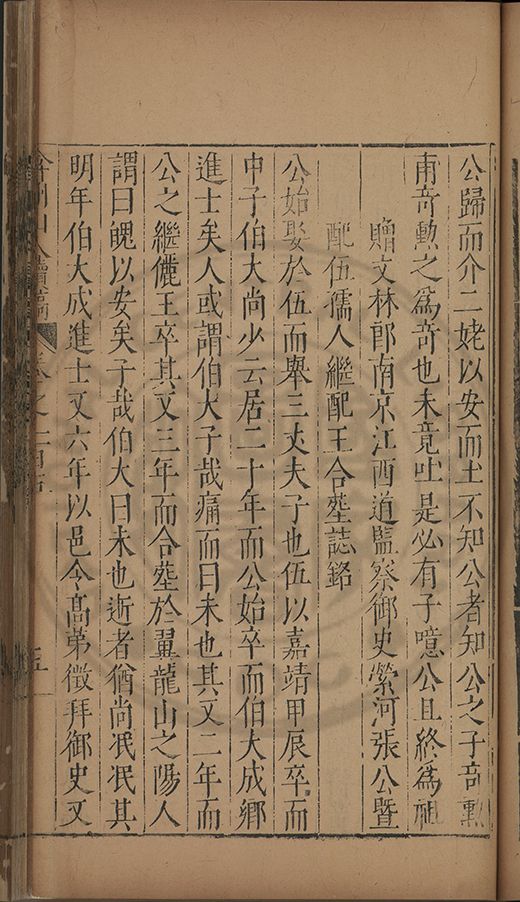 公歸而介二姥以安而土不知公者知公之子竒勲
甫竒勲之爲竒也未竟吐是必有子噫公且終爲祖
贈文林郎南京江西道監察御史縈河張公暨
配伍孺人繼配王合塟誌銘
公始娶於伍而舉三丈夫子也伍以嘉靖甲辰卒而
中子伯大尚少云居二十年而公始卒而伯大成鄉
進士矣人或謂伯大子哉痛而曰未也其又二年而
公之繼儷王卒其又三年而合塟於翼龍山之陽人
謂曰魄以安矣子哉伯大曰未也逝者猶尚泯泯其
明年伯大成進士又六年以邑令髙第徵拜御史又